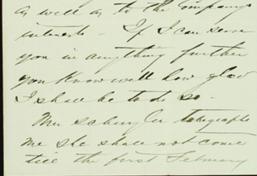 as well as to the Company's
interests - If I can serve
you in anything further
you know well how glad
I shall be to do so -
Mrs telegraphs
me she shall not come
till the first February